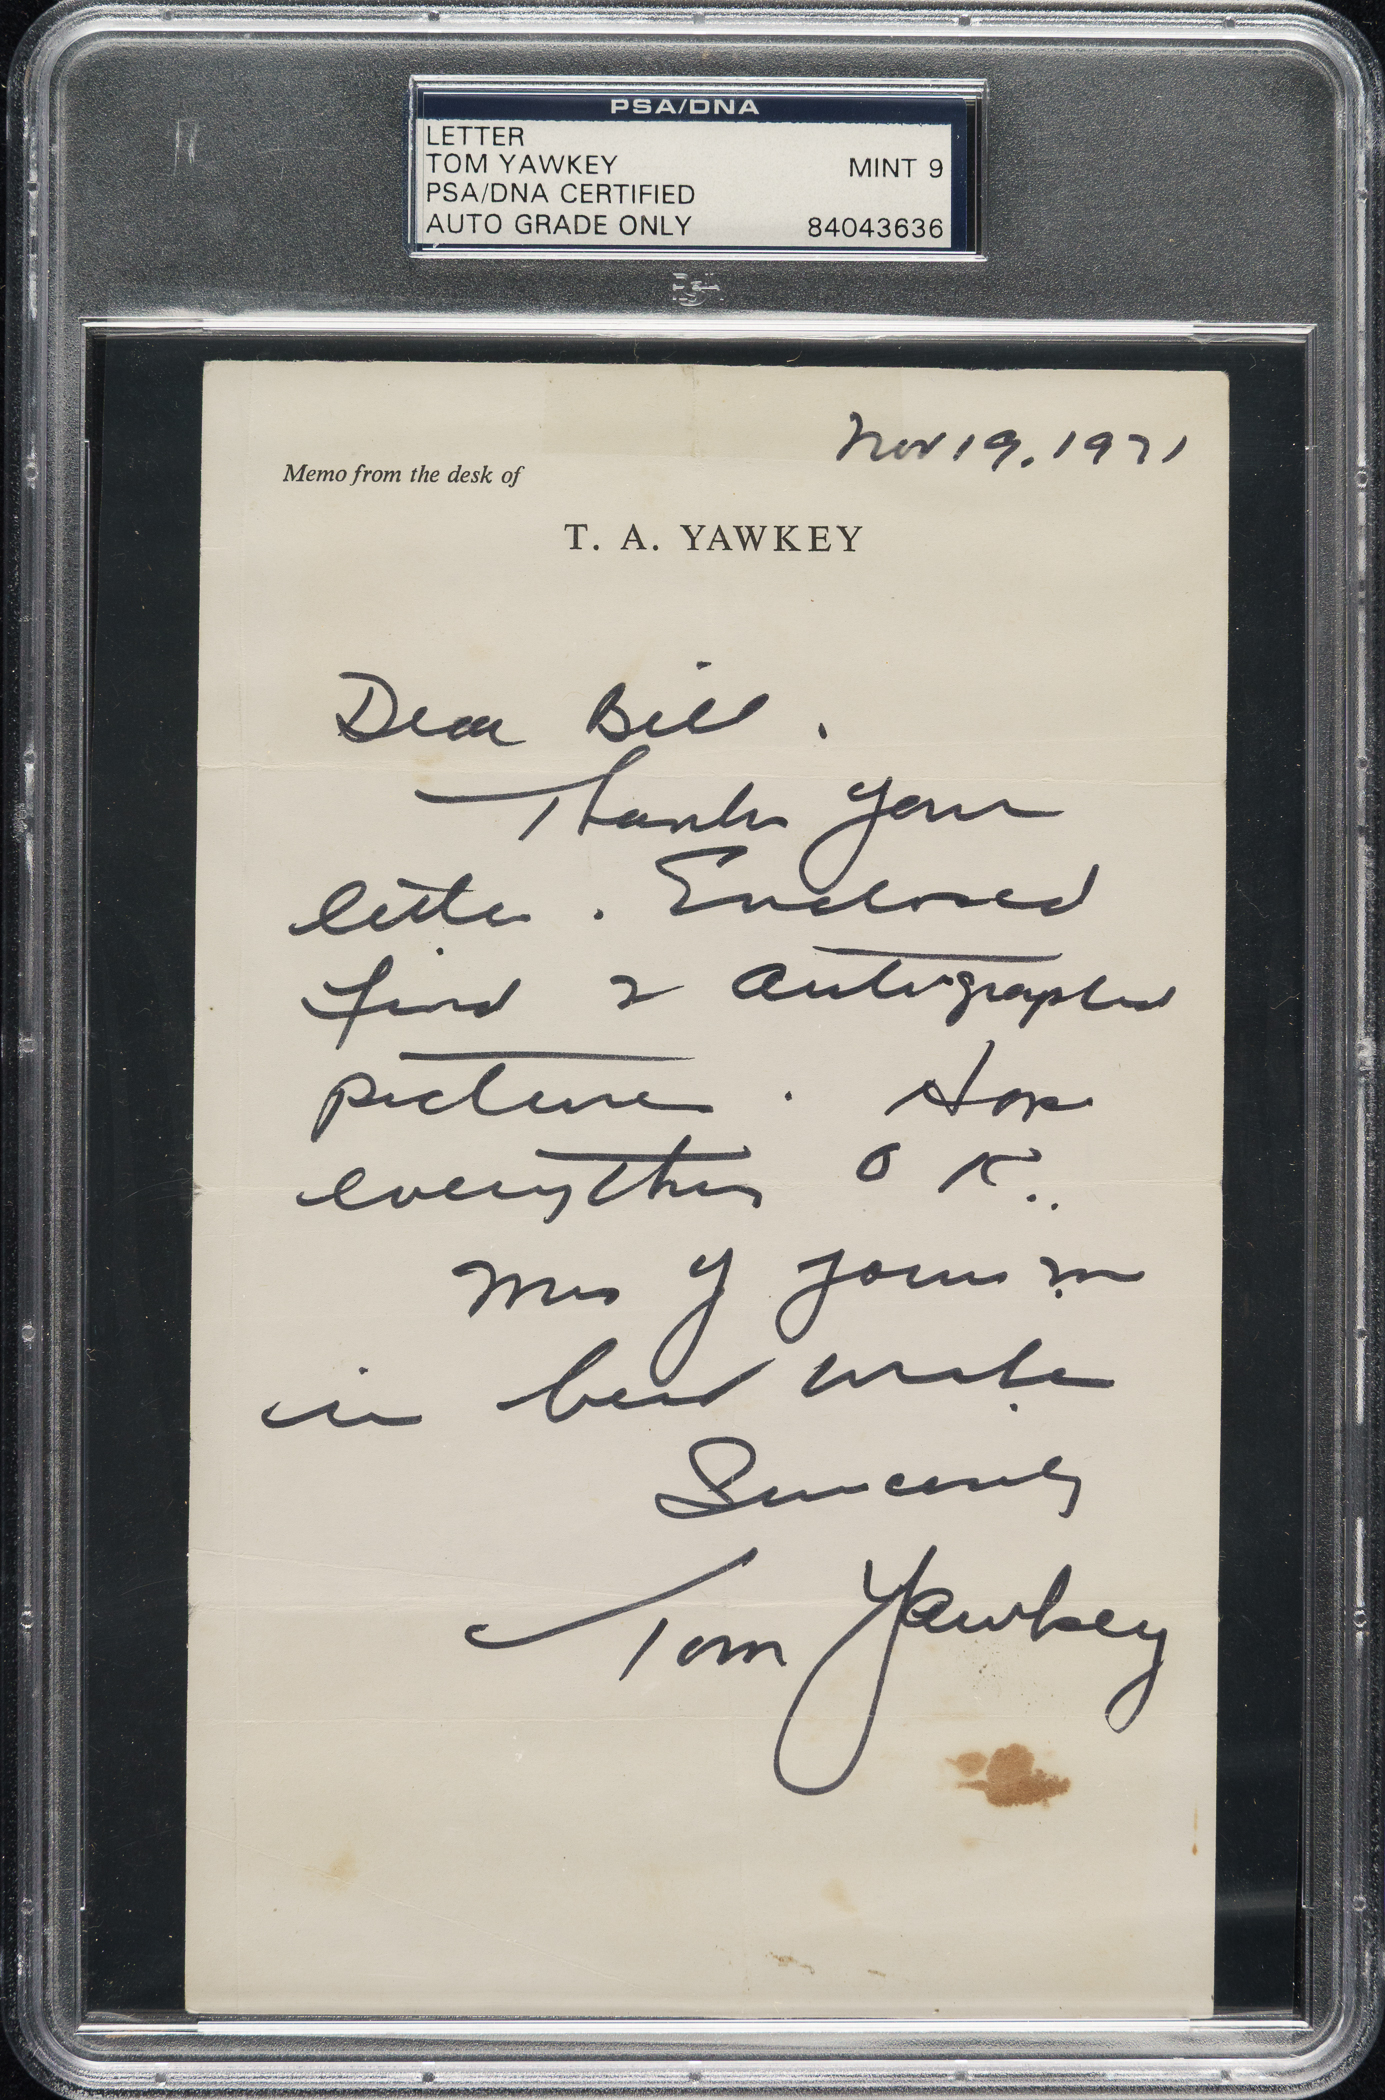 PSA/DNA
LETTER
TOM YAWKEY
MINT 9
PSA/DNA CERTIFIED
AUTO GRADE ONLY
84043636
Nov 19, 1971
Memo from the desk of
T. A. YAWKEY
Dear Bill.
Thanks your
letter. Enclosed
find 2 autographed
pictures. Hope
everything O K.
Mrs Y joins me
in best wishes
Sincerely
Tom Yawkey